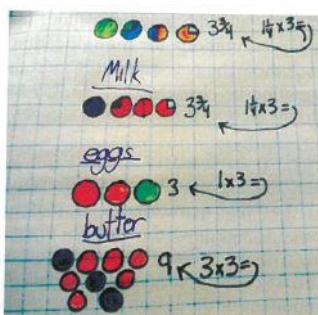 3 3/4 1 1/4 x 3 =
Milk
3 3/4 1 1/4 x 3 =
eggs
3 1 x 3 =
butter
9 3 x 3 =